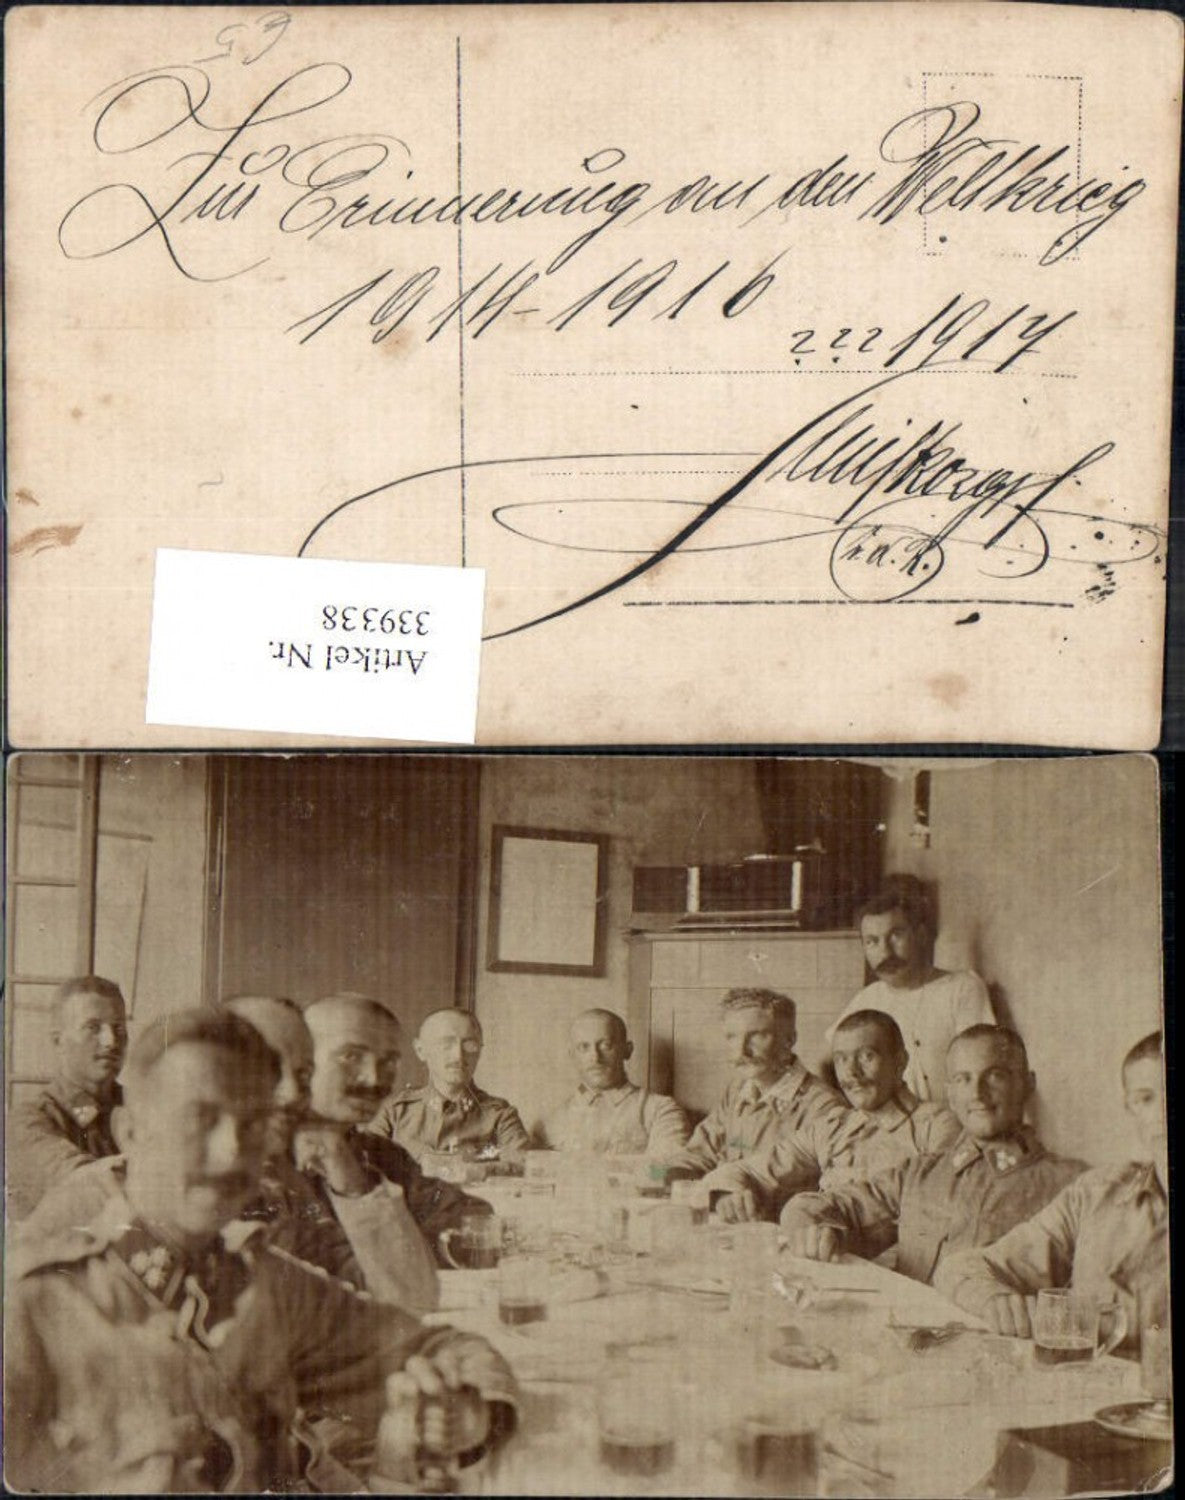 53
Zur Erinnerung an den Weltkrieg
1914-1916
??? 1917
Artikel Nr.
339338